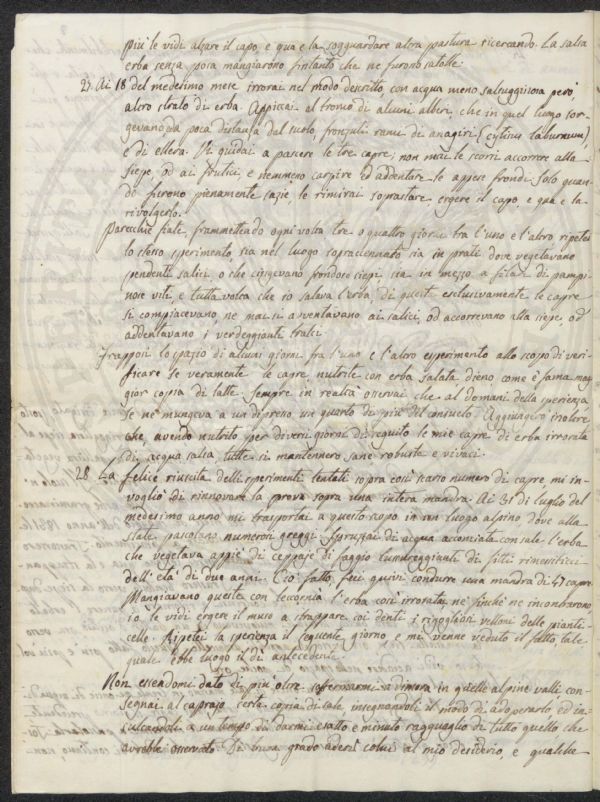 più le vidi alzare il capo, e qua e la sogguardare altra pastura ricercando. La salsa
erba senza posa mangiarono fintanto che ne furono satolle.
27. Ai 18 del medesimo mese irrorai nel modo descritto, con acqua meno salsugginosa però,
altro strato di erba. Appiccai al tronco di alcuni alberi, che in quel luogo sor-
gevano da poca distanza dal suolo, fronzuti rami di anagiri (cytisus laburnum),
e di ellera. Vi guidai a pascere le tre capre; non mai le scorsi accorrere alla
siepe, od ai frutici, e nemmeno carpire ed addentare le appese frondi. Solo quan-
do furono pienamente sazie, le rimirai soprastare, ergere il capo, e qua e la
rivolgerlo.
Parecchie fiate, frammettendo ogni volta tre o quattro giorni tra l'uno e l'altro, ripetei
lo stesso sperimento, sia nel luogo sopraccennato, sia in prati dove vegetavano
pendenti salici, o che cingevano fondose siepi, sia in mezzo a filari di pampi-
nose viti, e tutta volta che io salava l'erba, di questa esclusivamente le capre
si compiacevano, ne mai si avventavano ai salici, od accorrevano alla siepe, od
addentavano i verdeggianti tralci.
Frapposi lo spazio di alcuni giorni fra l'uno e l'altro esperimento allo scopo di veri-
ficare se veramente le capre nutrite con erba salata dieno come è fama mag-
gior copia di latte. Sempre in realtà osservai che al domani della sperienza
se ne mungeva a un dipresso un quarto di più del consueto. Aggiungerò inoltre
che, avendo nutrito per diversi giorni di seguito le mie capre di erba irrorata
di acqua salsa, tutte si mantennero sane robuste e vivaci.
28. La felice riuscita delli sperimenti tentati sopra così scarso numero di capre, mi in-
vogliò di rinnovare la prova sopra una intera mandra. Ai 31 di luglio del
medesimo anno mi trasportai a questo scopo in un luogo alpino dove alla
state pascolano numerosi greggi. Spruzzai di acqua acconciata con sale l'erba
che vegetava appiè di ceppaje di faggio lussureggianti di fitti rimettiticci
dell'età di due anni. Ciò fatto, feci quivi condurre una mandra di 47 capre.
Mangiavano queste con leccornia l'erba così irrorata, ne finchè ne inconbarono
io le vidi ergere il muso a strappare coi denti i rigogliosi vettoni delle pianti-
celle. Ripetei la sperienza il seguente giorno e mi venne veduto il fatto, tale
quale ebbe luogo il dì antecedente.
Non essendomi dato di più oltre soffermarmi a dimora in quelle alpine valli, con-
segnai al caprajo certa copia di sale insegnandogli il modo di adoperarlo ed in-
culcandoli a un tempo di darmi esatto e minuto ragguaglio di tutto quello che
avrebbe osservato. Di buon grado aderì colui al mio desiderio, e qualche